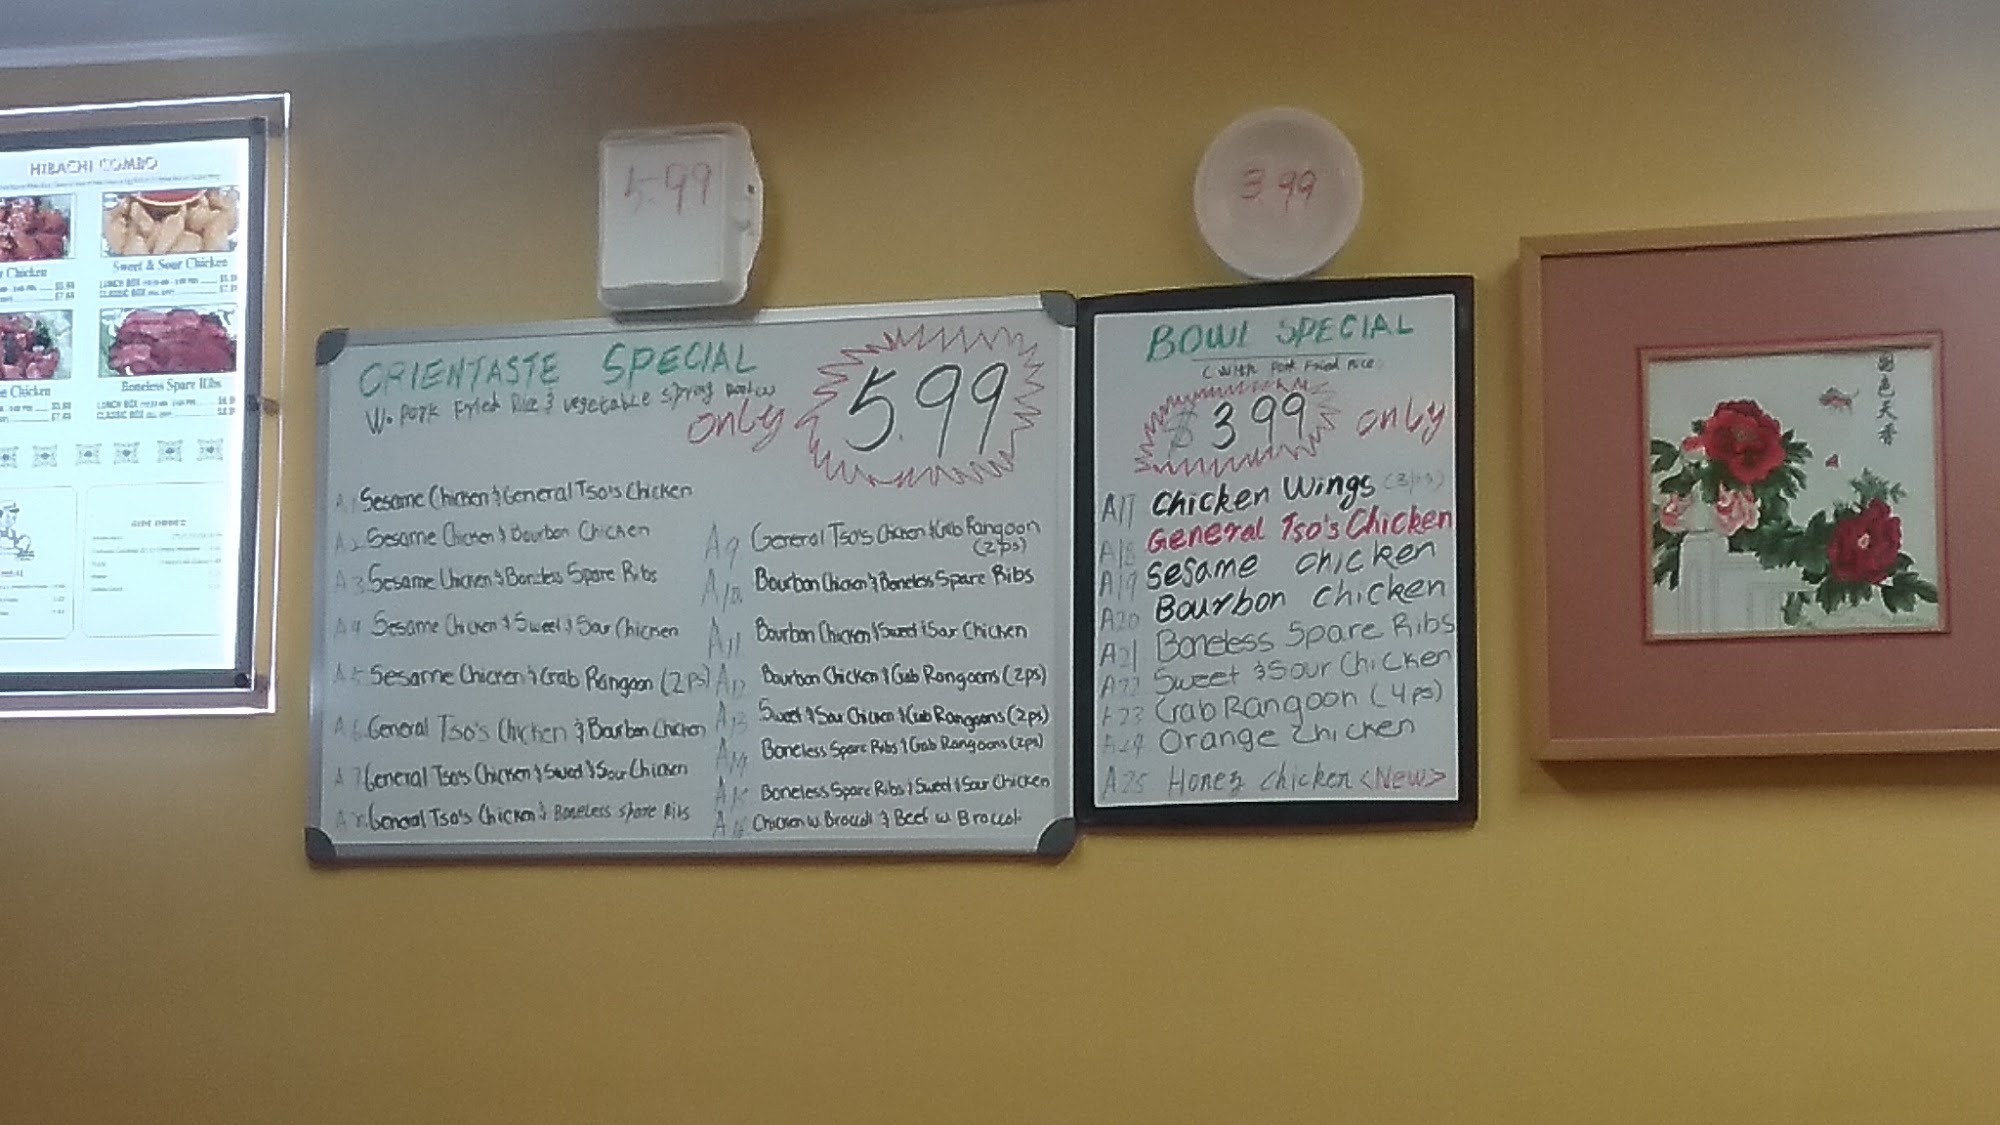 HIBACHI COMBO
Sweet & Sour Chicken
LUNCH BOX
CLASSIC BOX
Chicken
Boneless Spare Ribs
LUNCH BOX
CLASSIC BOX
Chicken
SIDE ORDER
5.99
ORIENTASTE SPECIAL
W. Pork Fried Rice & vegetable spring
only 5.99
A1 Sesame Chicken & General Tso's Chicken
A2 Sesame Chicken & Bourbon Chicken
A3 Sesame Chicken & Boneless Spare Ribs
A4 Sesame Chicken & Sweet & Sour Chicken
A5 Sesame Chicken & Crab Rangoon (2ps)
A6 General Tso's Chicken & Bourbon Chicken
A7 General Tso's Chicken & Sweet & Sour Chicken
A8 General Tso's Chicken & Boneless Spare Ribs
A9 General Tso's Chicken & Crab Rangoon
(2ps)
A10 Bourbon Chicken & Boneless Spare Ribs
A11 Bourbon Chicken & Sweet & Sour Chicken
A12 Bourbon Chicken & Crab Rangoons (2ps)
A13 Sweet & Sour Chicken & Crab Rangoons (2ps)
A14 Boneless Spare Ribs & Crab Rangoons (2ps)
A15 Boneless Spare Ribs & Sweet & Sour Chicken
A16 Chicken w. Broccoli & Beef w. Broccoli
3.99
BOWL SPECIAL
(with Pork Fried Rice)
$3.99 only
A17 Chicken Wings (3ps)
A18 General Tso's Chicken
A19 Sesame chicken
A20 Bourbon chicken
A21 Boneless Spare Ribs
A22 Sweet & Sour Chicken
A23 Crab Rangoon (4ps)
A24 Orange Chicken
A25 Honey chicken <New>
國色天香